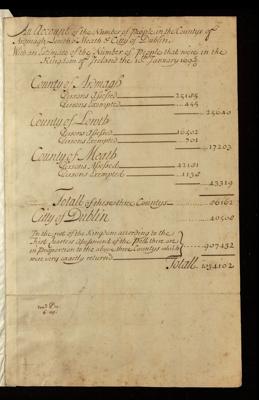 An Account of the Number of People in the County of
Ardmagh Lowth & Meath & City of Dublin.
With an Estimate of the Number of People that were in the
Kingdom of Ireland the 10th January 1695/6
County of Ardmagh
Persons Assessed
Persons Exempted 445
25640
County of Lowth
Persons Assessed 16502
Persons Exempted 701
17203
County of Meath
Persons Assessed 42181
Persons Exempted 1138
43319
Totall of these three Countys 86162
City of Dublin 40508
In the rest of the Kingdom according to the
first quarters Assessment of the Poll there are
in proportion to the above three Countys which
were very exactly returned
907432
Totall 1034102